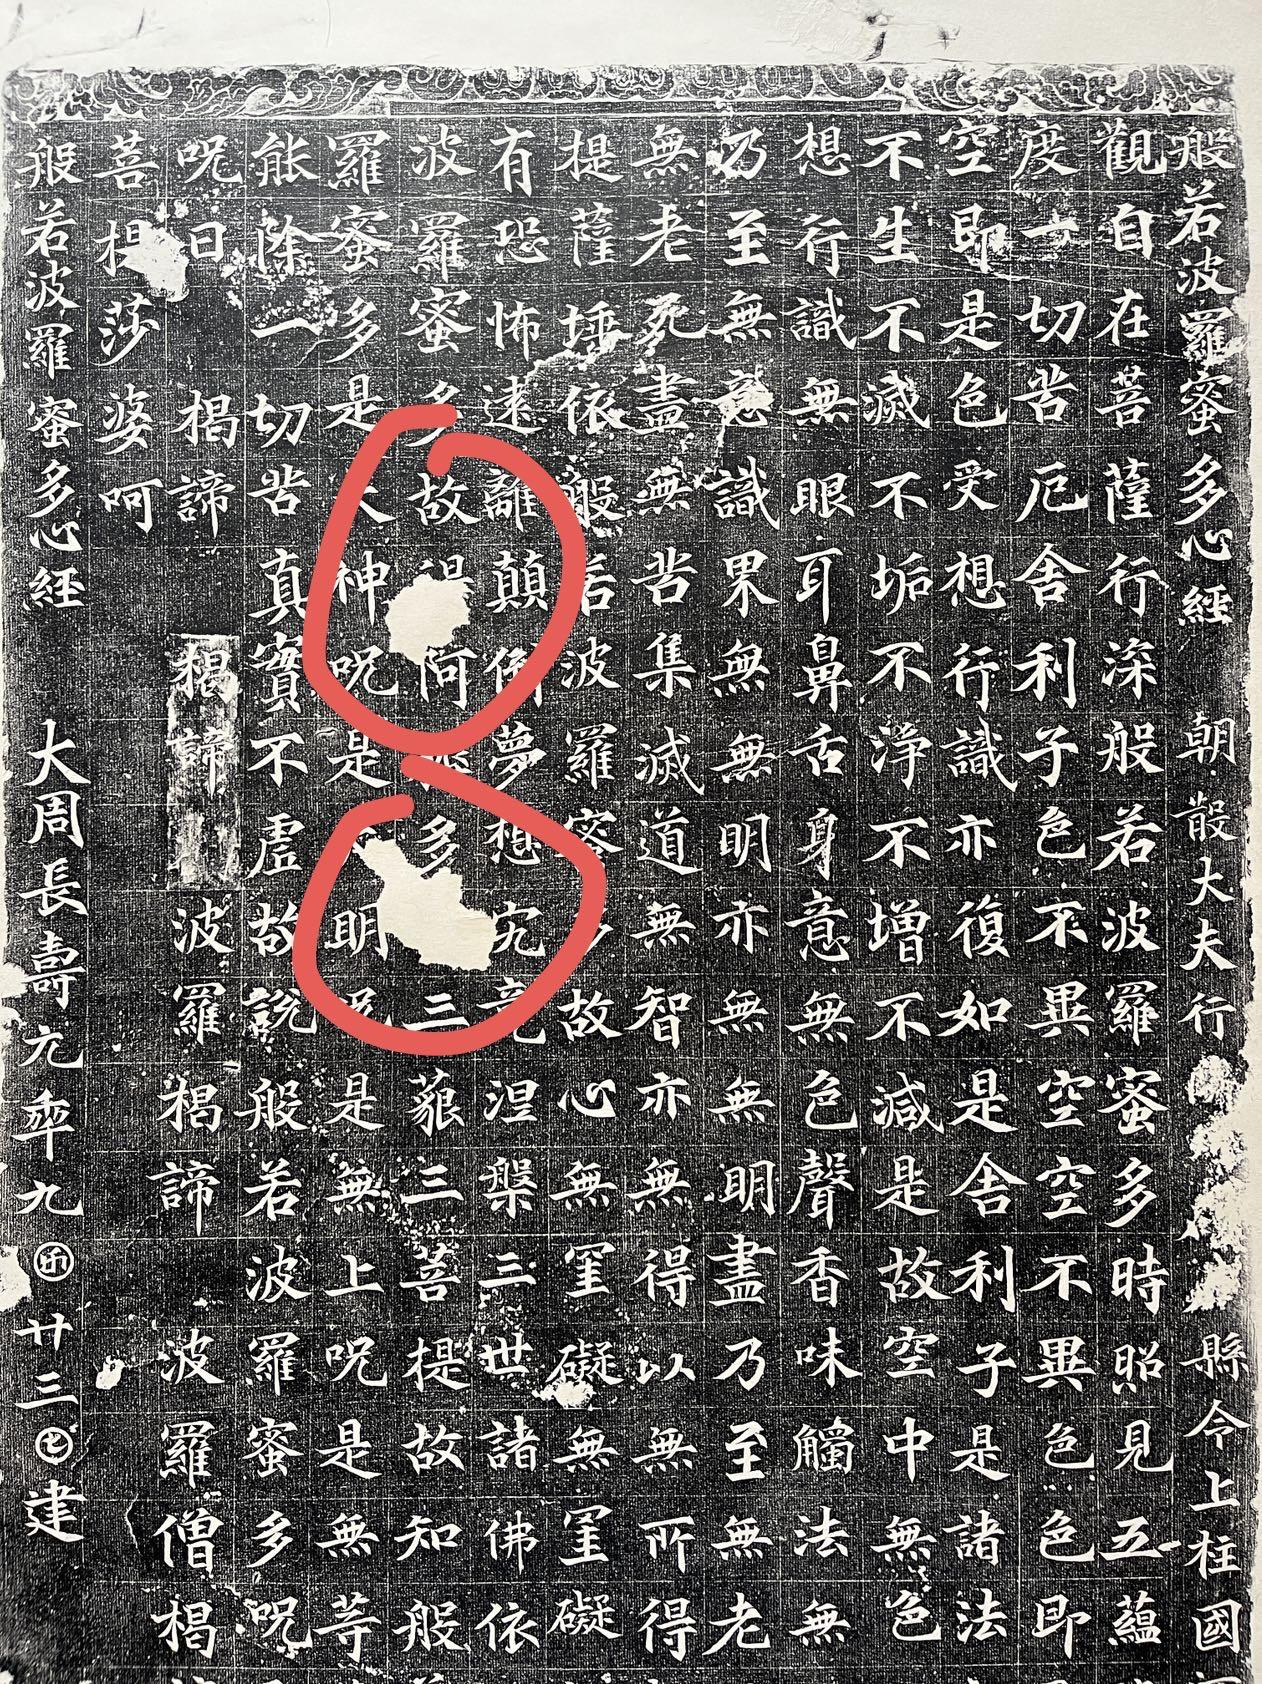 般若波羅蜜多心經 朝散大夫行縣令上柱國
觀自在菩薩行深般若波羅蜜多時照見五蘊
度一切苦厄舍利子色不異空空不異色色即
空即是色受想行識亦復如是舍利子是諸法
不生不滅不垢不淨不增不減是故空中無色
想行識無眼耳鼻舌身意無色聲香味觸法無
乃至無意識界無無明亦無無明盡乃至無老
無老死盡無苦集滅道無智亦無得以無所得
提薩埵依般若波羅蜜多故心無罣礙無罣礙
有恐怖遠離顛倒夢想究竟涅槃三世諸佛依
波羅蜜多故得阿耨多三藐三菩提故知般
羅蜜多是大神呪是大明呪是無上呪是無等
能除一切苦真實不虛故說般若波羅蜜多呪
呪曰 揭諦 揭諦 波羅揭諦 波羅僧揭
菩提莎婆呵
般若波羅蜜多心經 大周長壽元𠡦九月廿三日建